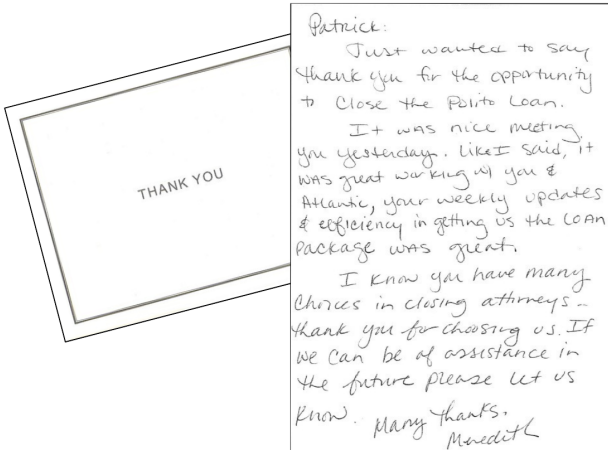 THANK YOU
Patrick:
Just wanted to say
thank you for the opportunity
to close the Polito Loan.
It was nice meeting
you yesterday. Like I said, it
was great working w/ you &
Atlantic, your weekly updates
& efficiency in getting us the Loan
package was great.
I know you have many
choices in closing attorneys -
thank you for choosing us. If
we can be of assistance in
the future please let us
know.
Many thanks,
Meredith